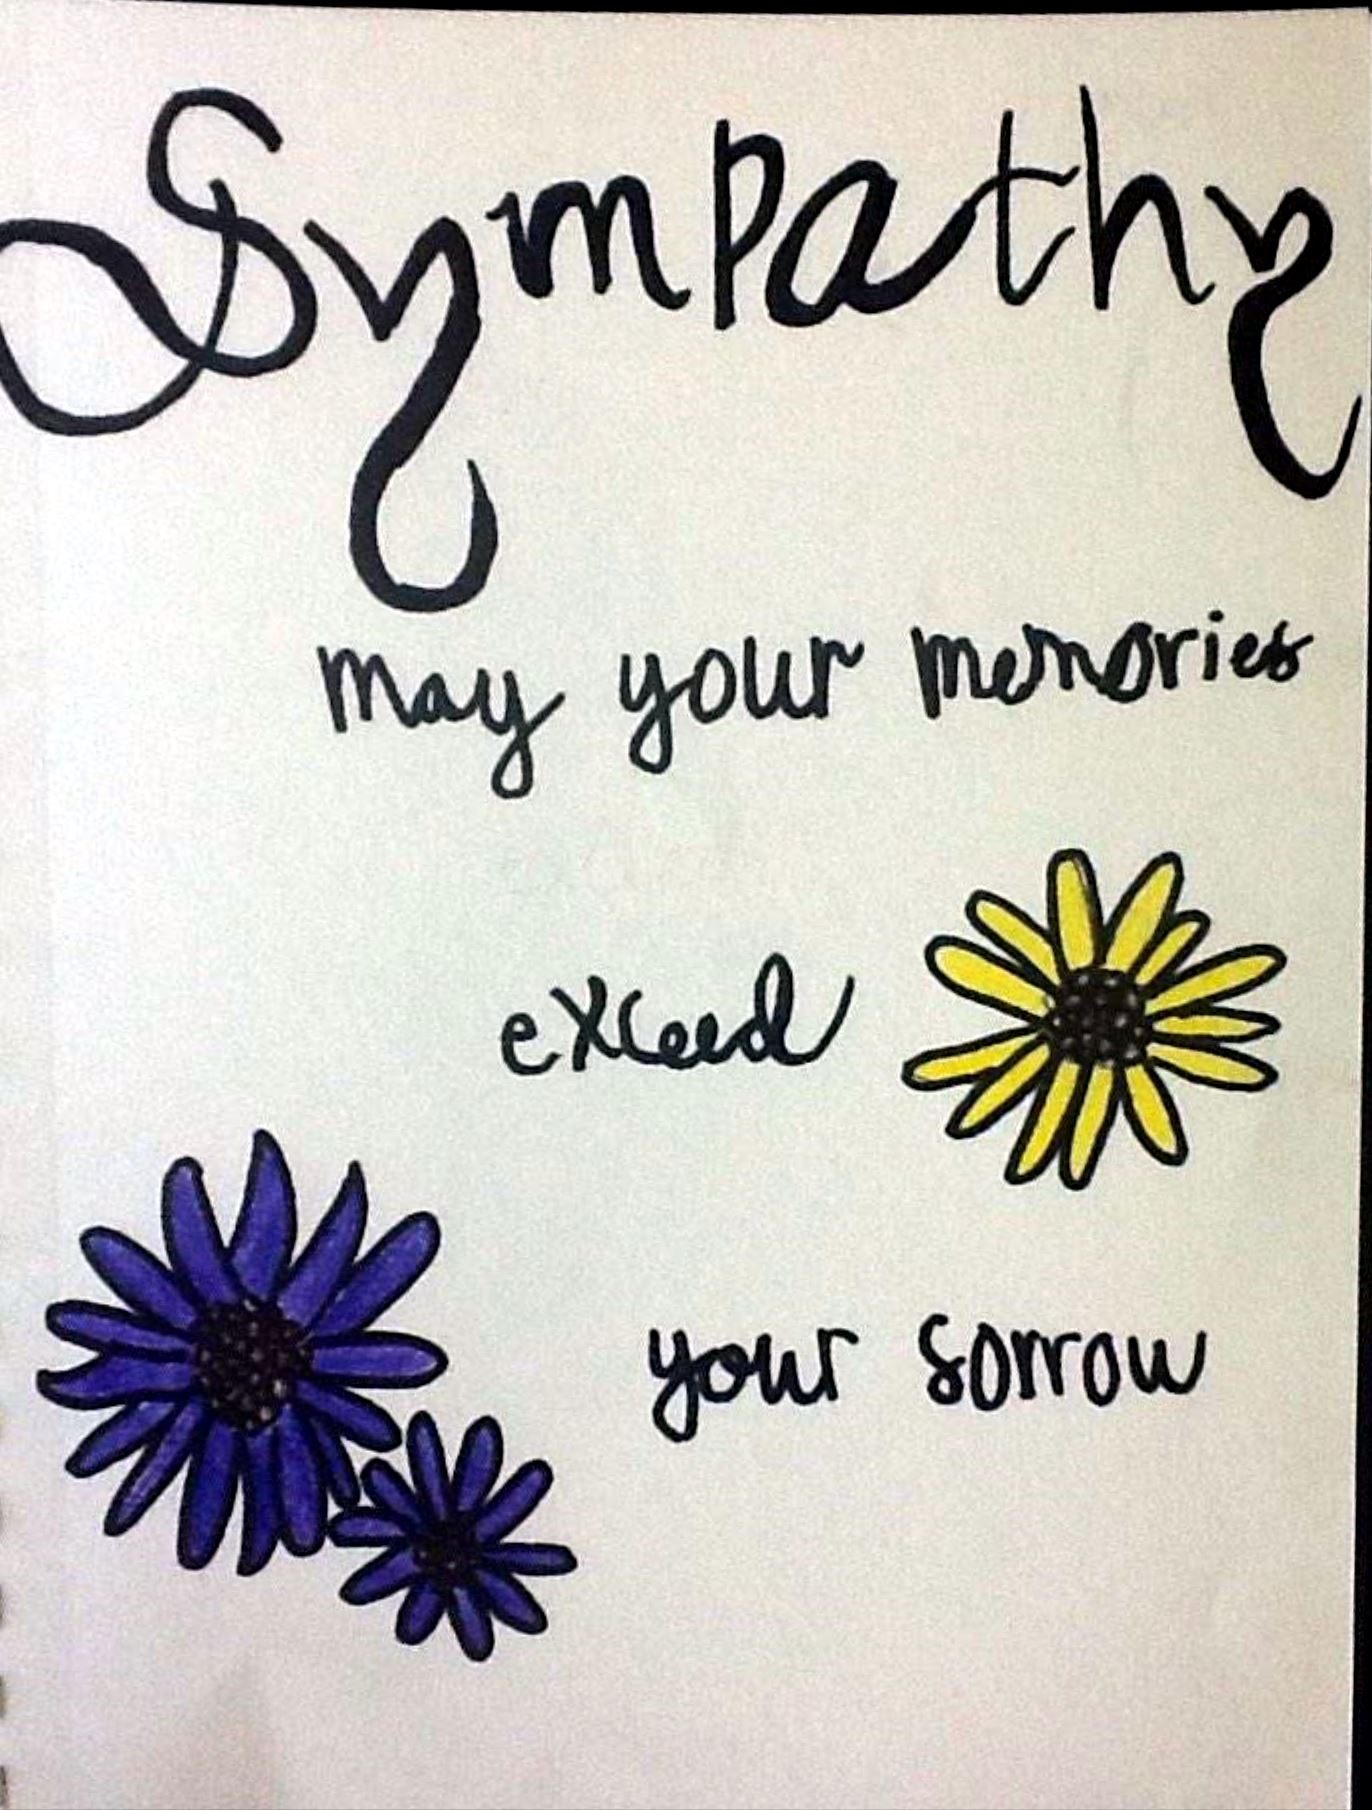 Sympathy
may your memories
exceed
your sorrow